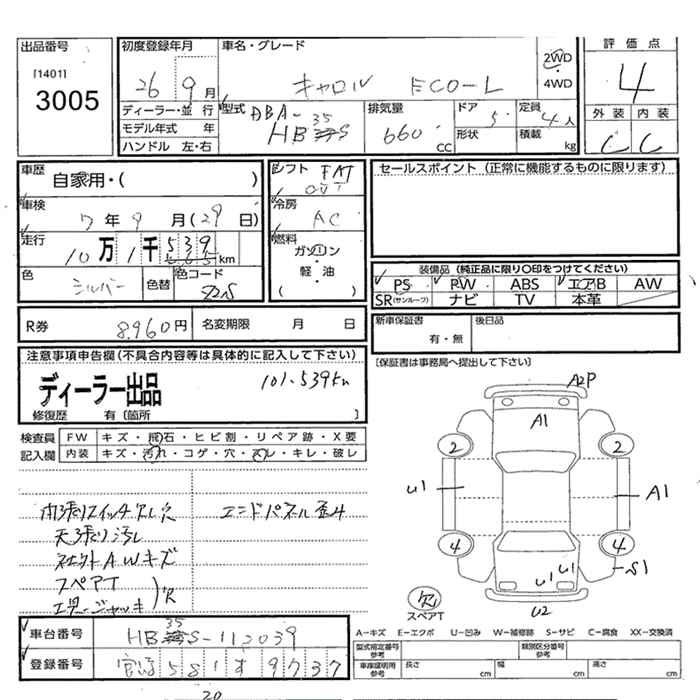 出品番号
[1401]
3005
初度登録年月
26 9月
車名・グレード
キャロル ECO-L
2WD
・
4WD
評価点
4
外装 内装
C C
ディーラー・並行
モデル年式 年
ハンドル 左・右
型式
DBA-
HB35S
排気量
660 CC
ドア 5
形状
定員 4人
積載 kg
車歴
自家用・( )
車検
7年9月(29日)
走行
10万1千539km
色
シルバー
色替
色コード
シフト FAT
冷房
AC
燃料
ガソリン
軽・油
( )
セールスポイント (正常に機能するものに限ります)
装備品 (純正品に限り○印をつけてください)
PS PW ABS エアB AW
SR(サンルーフ) ナビ TV 本革
R券 8,960円
名変期限 月 日
新車保証書
有・無
後日品
[保証書は事務局へ提出して下さい]
注意事項申告欄(不具合内容等は具体的に記入して下さい)
ディーラー出品
101.539km
修復歴 有〔箇所 〕
検査員
記入欄
FW キズ・飛石・ヒビ割・リペア跡・X要
内装 キズ・汚れ・コゲ・穴・スレ・キレ・破レ
内張りスイッチ穴
天張り汚レ
社外AWキズ
スペアT
工具・ジャッキ
欠
エンドパネル
A2P
A1
2 2
U1
A1
4 4
U1 U1
S1
U2
欠
スペアT
車台番号
HB35S-112039
登録番号
581 す 9737
20
A-キズ E-エクボ U-凹み W-補修跡 S-サビ C-腐食 XX-交換済
型式指定番号
参考
類別区分番号
参考
車庫証明用
参考
長さ cm
幅 cm
高さ cm